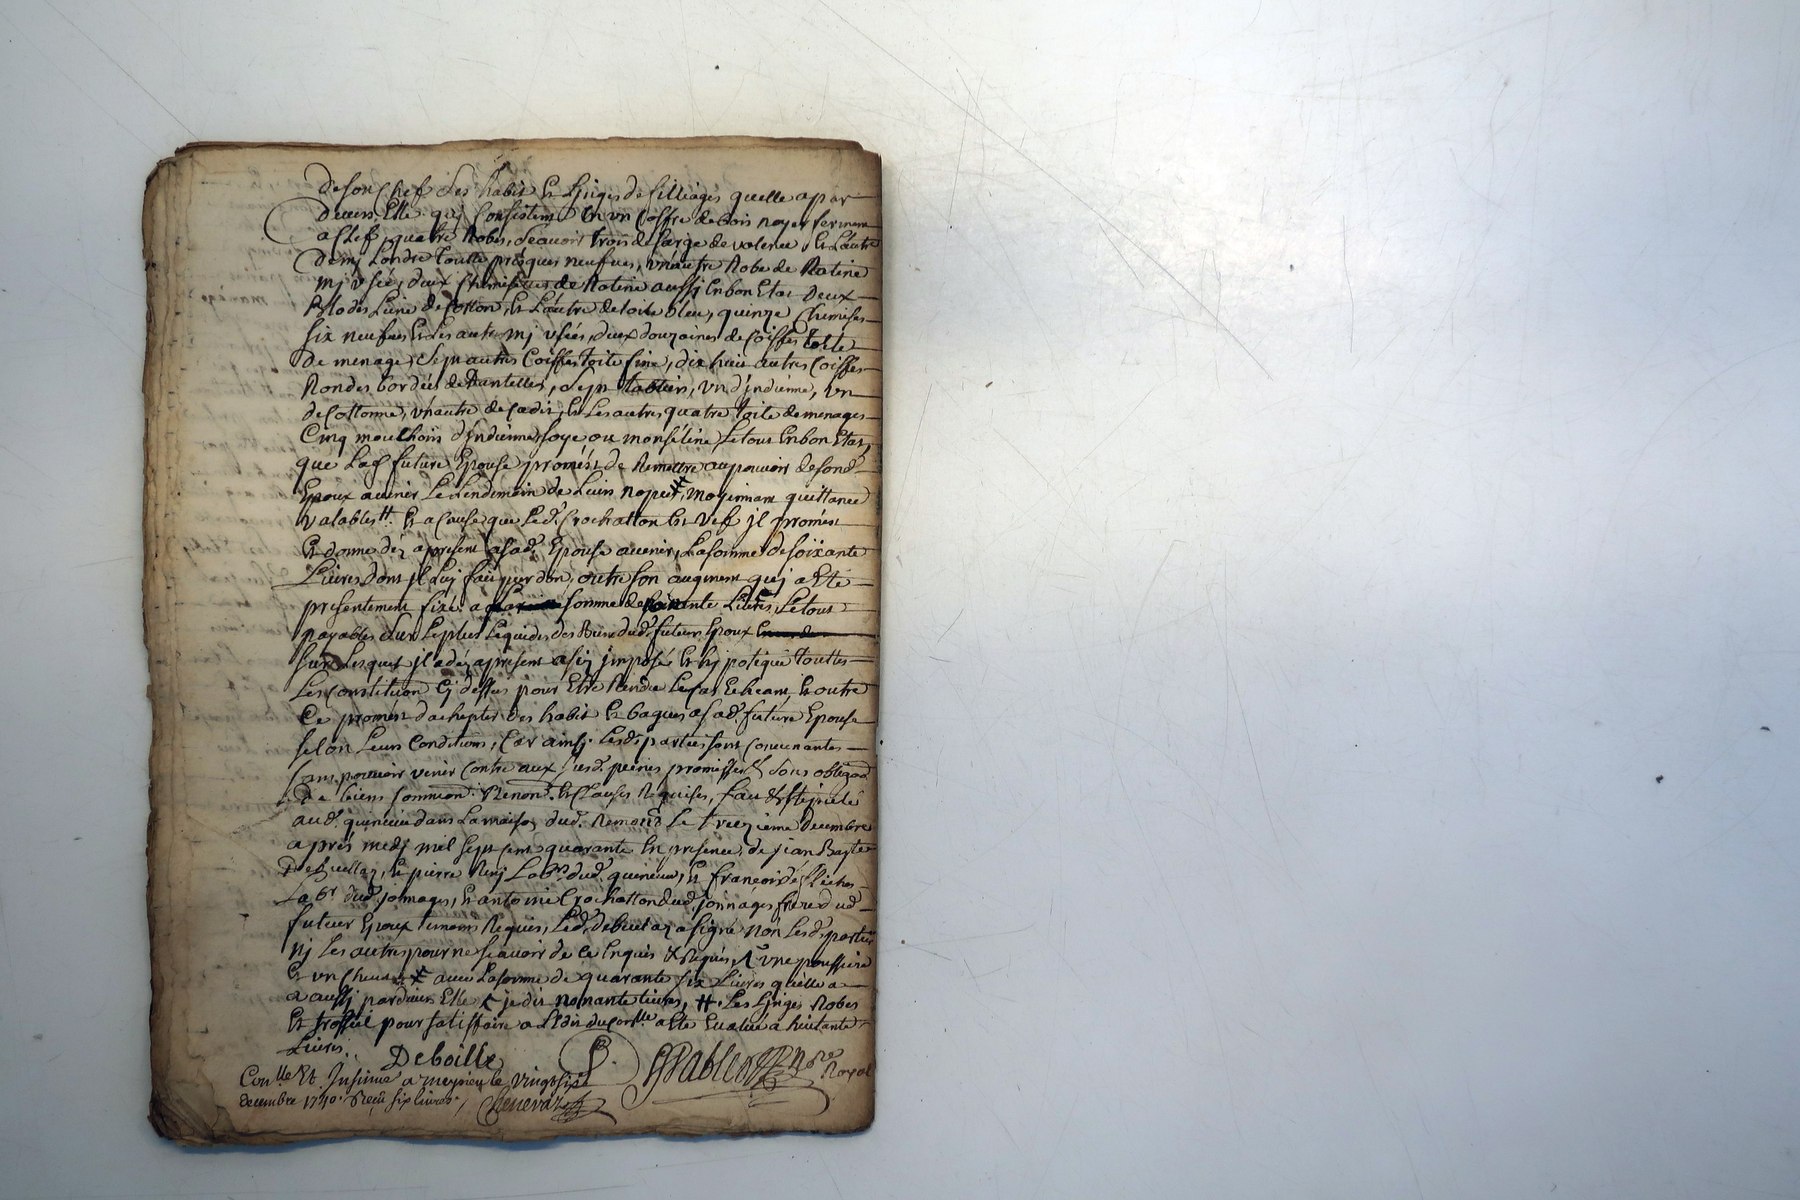 de son Chef Les habit Et Linges de filliages quelle a par
devers Elle qui Consistent En un Coffre de bois noyer fermant
a Clef, quatre Robes, Scavoir trois de sarge de valence, Et L'autre
Demy Londre toutte presques neufves, un autre Robe de Ratine
my usée, deux Chemisettes de Ratine aussy En bon Etat Deux
Blodes L'une de Cotton, Et L'autre de toile bleu, quinze Chemises
Six neufves Et Les autres mj usées, deux douzaines de Coiffes toile
de menage, Sept autres Coiffes toile fine, dix huit autres Coiffes
Rondes bordées de Dantelles, Sept tabliers, un d'jndienne, un
de Cottonne, un autre de Cadis, Et Les autres quatre toile de menages
Cinq mouchoirs d'Indienne, soye ou monseline Le tout En bon Etat,
que Lad future Epouse promést de Remettre au pouvoir de sond
Epoux avenir Le Lendemain de Leurs nopces, moyennant quittance
valables #. Et a Cause que Led. Crochatton Est vef jl promést
Et donne dez apresent a sad. Epouse avenir, La somme de soixante
Livres dont jl Luj fait pur don, outre son augment quj a Eté
presentement fixé a somme de Livres, Le tout
payables sur Le plus Lequides des Biens dud. futeur Epoux
sur Lesquels jl a dez apresent asiz jmposé Et hipotéqué touttes
Les Constitution Cj dessus pour Etre Rendu Le Cas Echeant, Et outre
Ce promést d'achepter des habit Et bagues a sad. future Epouse
selon Leurs Conditions, Car ainsj Lesd. parties sont Convenantes
sans pouvoir venir Contre aux susd. peines promisses Et sous obligaon
De biens Renon. Et Clauses Requises, fait Et stipulé
aud. quincieu dans La maison dud. Remond Le treizieme decembre
apres medy mil sept cent quarante En presence de jean Bapte
Debuellaz, Et pierre Labr. dud. quincieu, Et francois
Labr dud. jonnages, Et antoine Crochatton dud. jonnages frere dud
futeur Epoux temoins Requis, Led. debuellaz a signé non Les d. parties
nj Les autres pour ne scavoir de Ce Enquis Et Requis, une poussiere
Et un avec La somme de quarante six Livres qu'elle a
a aussj pardevers Elle je dis nonante livres, # Les Linges Robes
Et trossel pour satisfaire a L'Edit du Conlle a Eté Evalué a huitante
Livres.
Deboille nore Royal
Conlle Et Insinué a meyzieu le vingt six
decembre 1740. Receu six livres. Chenevaz